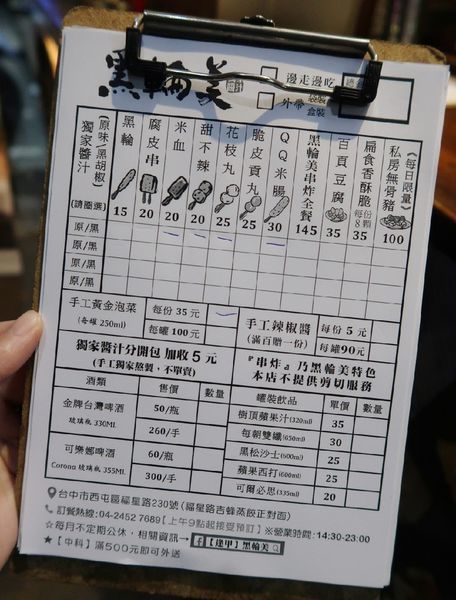 黑輪美
邊走邊吃
外帶 袋裝 盒裝
獨家醬汁 (原味/黑胡椒) (請圈選)
黑輪 15
腐皮串 20
米血 20
甜不辣 20
花枝丸 25
脆皮貢丸 25
QQ米腸 30
黑輪美串炸全餐 145
百頁豆腐 35
扁食香酥脆 每份8顆 35
私房無骨豬 (每日限量) 100
原/黑
原/黑
原/黑
原/黑
手工黃金泡菜 (每罐 250ml)
每份 35元
每罐 100元
手工辣椒醬 (滿百贈一份)
每份 5元
每罐 90元
獨家醬汁分開包 加收 5 元
(手工獨家熬製,不單賣)
『串炸』乃黑輪美特色
本店不提供剪切服務
酒類 售價 數量
金牌台灣啤酒 玻璃瓶 330Ml. 50/瓶
260/手
可樂娜啤酒 Corona 玻璃瓶 355Ml. 60/瓶
300/手
罐裝飲品 單價 數量
樹頂蘋果汁(320ml) 35
每朝雙纖(650ml) 30
黑松沙士(600ml) 25
蘋果西打(600ml) 25
可爾必思(335ml) 20
台中市西屯區福星路230號 (福星路吉蜂蒸餃正對面)
訂餐熱線:04-2452 7689【上午9點起接受預訂】※營業時間:14:30-23:00
☆每月不定期公休,相關資訊→ f【逢甲】黑輪美
★【中科】滿500元即可外送